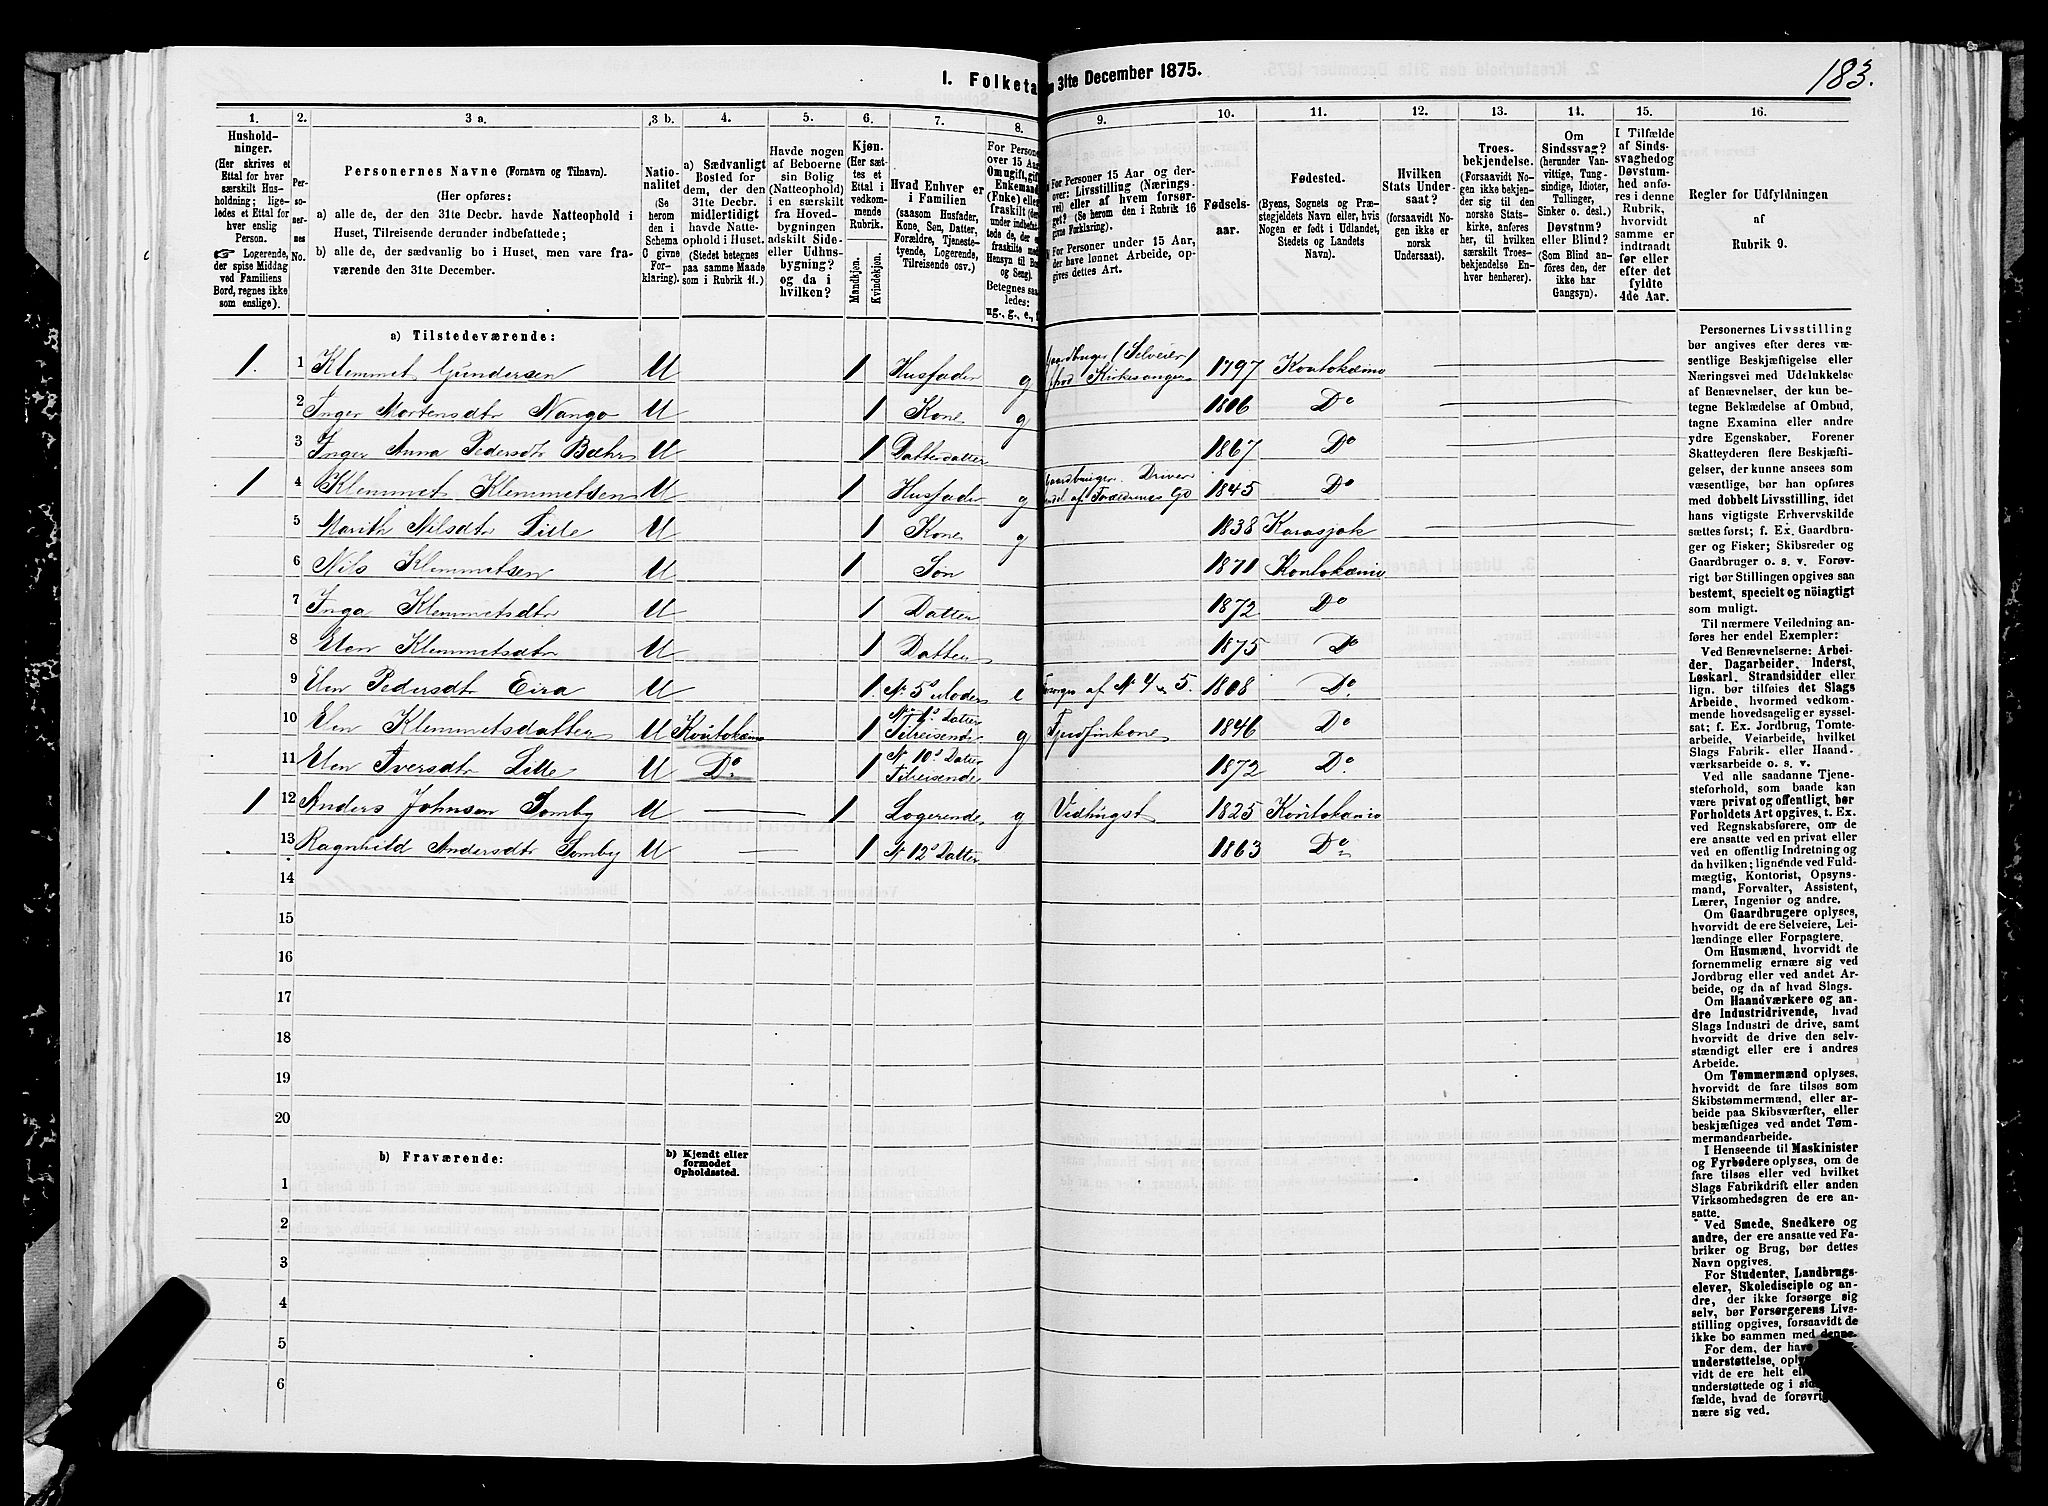 I. Folketa
n 31te December 1875.
183.
1.
2.
3 a.
3 b.
4.
5.
6.
7.
8.
9.
10.
11.
12.
13.
14.
15.
16.
Hushold-
ninger.
(Her skrives et
Ettal for hver
særskilt Hus-
holdning; lige-
ledes et Ettal for
hver enslig
Person.
Logerende,
der spise Middag
ved Familiens
Bord, regnes ikke
som enslige).
Per-
so-
ner-
nes
No.
Personernes Navne (Fornavn og Tilnavn).
(Her opføres:
a) alle de, der den 31te Decbr. havde Natteophold i
Huset, Tilreisende derunder indbefattede;
b) alle de, der sædvanlig bo i Huset, men vare fra-
værende den 31te December.
Natio-
nalitet
(Se
herom
den i
Schema
G givne
For-
klaring).
a) Sædvanligt
Bosted for
dem, der den
31te Decbr.
midlertidigt
havde Natte-
ophold i Huset.
(Stedet betegnes
paa samme Maade
som i Rubrik 11.)
Havde nogen
af Beboerne
sin Bolig
(Natteophold)
i en særskilt
fra Hoved-
bygningen
adskilt Side-
eller Udhus-
bygning?
og da i
hvilken?
Kjøn.
(Her sæt-
tes et
Ettal i
vedkom-
mende
Rubrik.
Mandkjøn.
Kvindekjøn.
Hvad Enhver er
i Familien
(saasom Husfader,
Kone, Søn, Datter,
Forældre, Tjeneste-
tyende, Logerende,
Tilreisende osv.)
For Persone
over 15 Aar
Om ugift, gift
Enkemand
(Enke) eller
fraskilt (der-
under indbefat-
tede de, der ere
fraskilte med
Hensyn til Bord
og Seng).
Betegnes saa-
ledes:
ug., g., e., f.
For Personer 15 Aar og der-
over: Livsstilling (Nærings-
vei) eller af hvem forsør-
get? (Se herom den i Rubrik 16
givne Forklaring).
For Personer under 15 Aar,
der have lønnet Arbeide, op-
gives dettes Art.
Fødsels-
aar.
Fødested.
(Byens, Sognets og Præ-
stegjeldets Navn eller, hvis
Nogen er født i Udlandet,
Stedets og Landets
Navn).
Hvilken
Stats Under-
saat?
(forsaavidt No-
gen ikke er
norsk
Undersaat).
Troes-
bekjendelse.
(Forsaavidt No-
gen ikke bekjen-
der sig til den
norske Stats-
kirke, anføres
her, til hvilken
særskilt Troes-
bekjendelse En-
hver henhører).
Om
Sindssvag?
(herunder Van-
vittige, Tung-
sindige, Idioter,
Tullinger,
Sinker o. desl.)
Døvstum?
eller Blind?
(Som Blind an-
føres den, der
ikke har
Gangsyn).
I Tilfælde
af Sinds-
svaghed og
Døvstum-
hed anfø-
res i denne
Rubrik,
hvorvidt
samme er
indtraadt
før eller
efter det
fyldte
4de Aar.
Regler for Udfyldningen
af
Rubrik 9.
a) Tilstedeværende:
1. 1 Klemmet Gundersen U 1 Husfader g Gaardbruger (Selveier) fhvd Kirkesanger 1797 Koutokæino
2 Inger Mortensdtr Nango U 1 Kone g 1806 Do
3 Inger Anna Pedersdtr Bæhr U 1 Datterdatter 1867 Do
1 4 Klemmet Klemmetsen U 1 Husfader g Gaardbruger. Driver endel af Forældrenes Gd 1845 Do
5 Marith Nilsdtr Lille U 1 Kone g 1838 Karasjok
6 Nils Klemmetsen U 1 Søn 1871 Koutokæino
7 Inga Klemmetsdtr U 1 Datter 1872 Do
8 Elen Klemmetsdtr U 1 Datter 1875 Do
9 Elen Pedersdtr Eira U 1. No 5s Moder e Forsørges af No 4 & 5. 1808 Do.
10 Elen Klemmetsdatter U Koutokæino 1 No 1s Datter Tilreisende g Fjeldfinkone 1846 Do.
11 Elen Iversdtr Lille U Do. 1 No 10s Datter Tilreisende 1872 Do.
1 12 Anders Johnsen Somby U 1 Logerende g Vedhugst 1825 Koutokæino
13 Ragnhild Andersdtr Somby U 1 No 12s Datter 1863 Do
14
15
16
17
18
19
20
b) Fraværende:
b) Kjendt eller
formodet
Opholdssted.
1
2
3
4
5
6
Personernes Livsstilling
bør angives efter deres væ-
sentlige Beskjæftigelse eller
Næringsvei med Udelukkelse
af Benævnelser, der kun be-
tegne Beklædelse af Ombud,
tagne Examina eller andre
ydre Egenskaber. Forener
Skatteyderen flere Beskjæfti-
gelser, der kunne ansees som
væsentlige, bør han opføres
med dobbelt Livsstilling, idet
hans vigtigste Erhvervskilde
sættes først; f. Ex. Gaardbru-
ger og Fisker; Skibsreder og
Gaardbruger o. s. v. Forøv-
rigt bør Stillingen opgives saa
bestemt, specielt og nöiagtigt
som muligt.
Til nærmere Veiledning an-
føres her endel Exempler:
Ved Benævnelserne: Arbei-
der, Dagarbeider, Inderst,
Løskarl, Strandsidder eller
lign. bør tilføies det Slags
Arbeide, hvormed vedkom-
mende hovedsagelig er syssel-
sat; f. Ex. Jordbrug, Tomte-
arbeide, Veiarbeide, hvilket
Slags Fabrik- eller Haand-
værksarbeide o. s. v.
Ved alle saadanne Tjene-
steforhold, som baade kan
være privat og offentligt, bør
Forholdets Art opgives, t. Ex.
ved Regnskabsførere, om de
ere ansatte ved en privat eller
ved en offentlig Indretning og
da hvilken; lignende ved Fuld-
mægtig, Kontorist, Opsyns-
mand, Forvalter, Assistent,
Lærer, Ingeniør og andre.
Om Gaardbrugere oplyses,
hvorvidt de ere Selveiere, Lei-
lændinge eller Forpagtere.
Om Husmænd, hvorvidt de
fornemmelig ernære sig ved
Jordbrug eller ved andet Ar-
beide, og da af hvad Slags.
Om Haandværkere og an-
dre Industridrivende, hvad
Slags Industri de drive, samt
hvorvidt de drive den selv-
stændigt eller ere i andres
Arbeide.
Om Tømmermænd oplyses,
hvorvidt de fare tilsøs som
Skibstømmermænd, eller ar-
beide paa Skibsværfter, eller
beskjæftiges ved andet Tøm-
mermandsarbeide.
I Henseende til Maskinister
og Fyrbødere oplyses, om de
fare tilsøs eller ved hvilket
Slags Fabrikdrift eller anden
Virksomhedsgren de ere an-
satte.
Ved Smede, Snedkere og
andre, der ere ansatte ved Fa-
briker og Brug, bør dettes
Navn opgives.
For Studenter, Landbrugs-
elever, Skoledisciple og an-
dre, der ikke forsørge sig
selv, bør Forsørgerens Livs-
stilling opgives, forsaavidt de
ikke bo sammen med denne.
For dem, der have
understøttelse, oply
vidt de ere helt el
understøttede og i sid
fælde, hvad de forøvrig
nære sig ved.